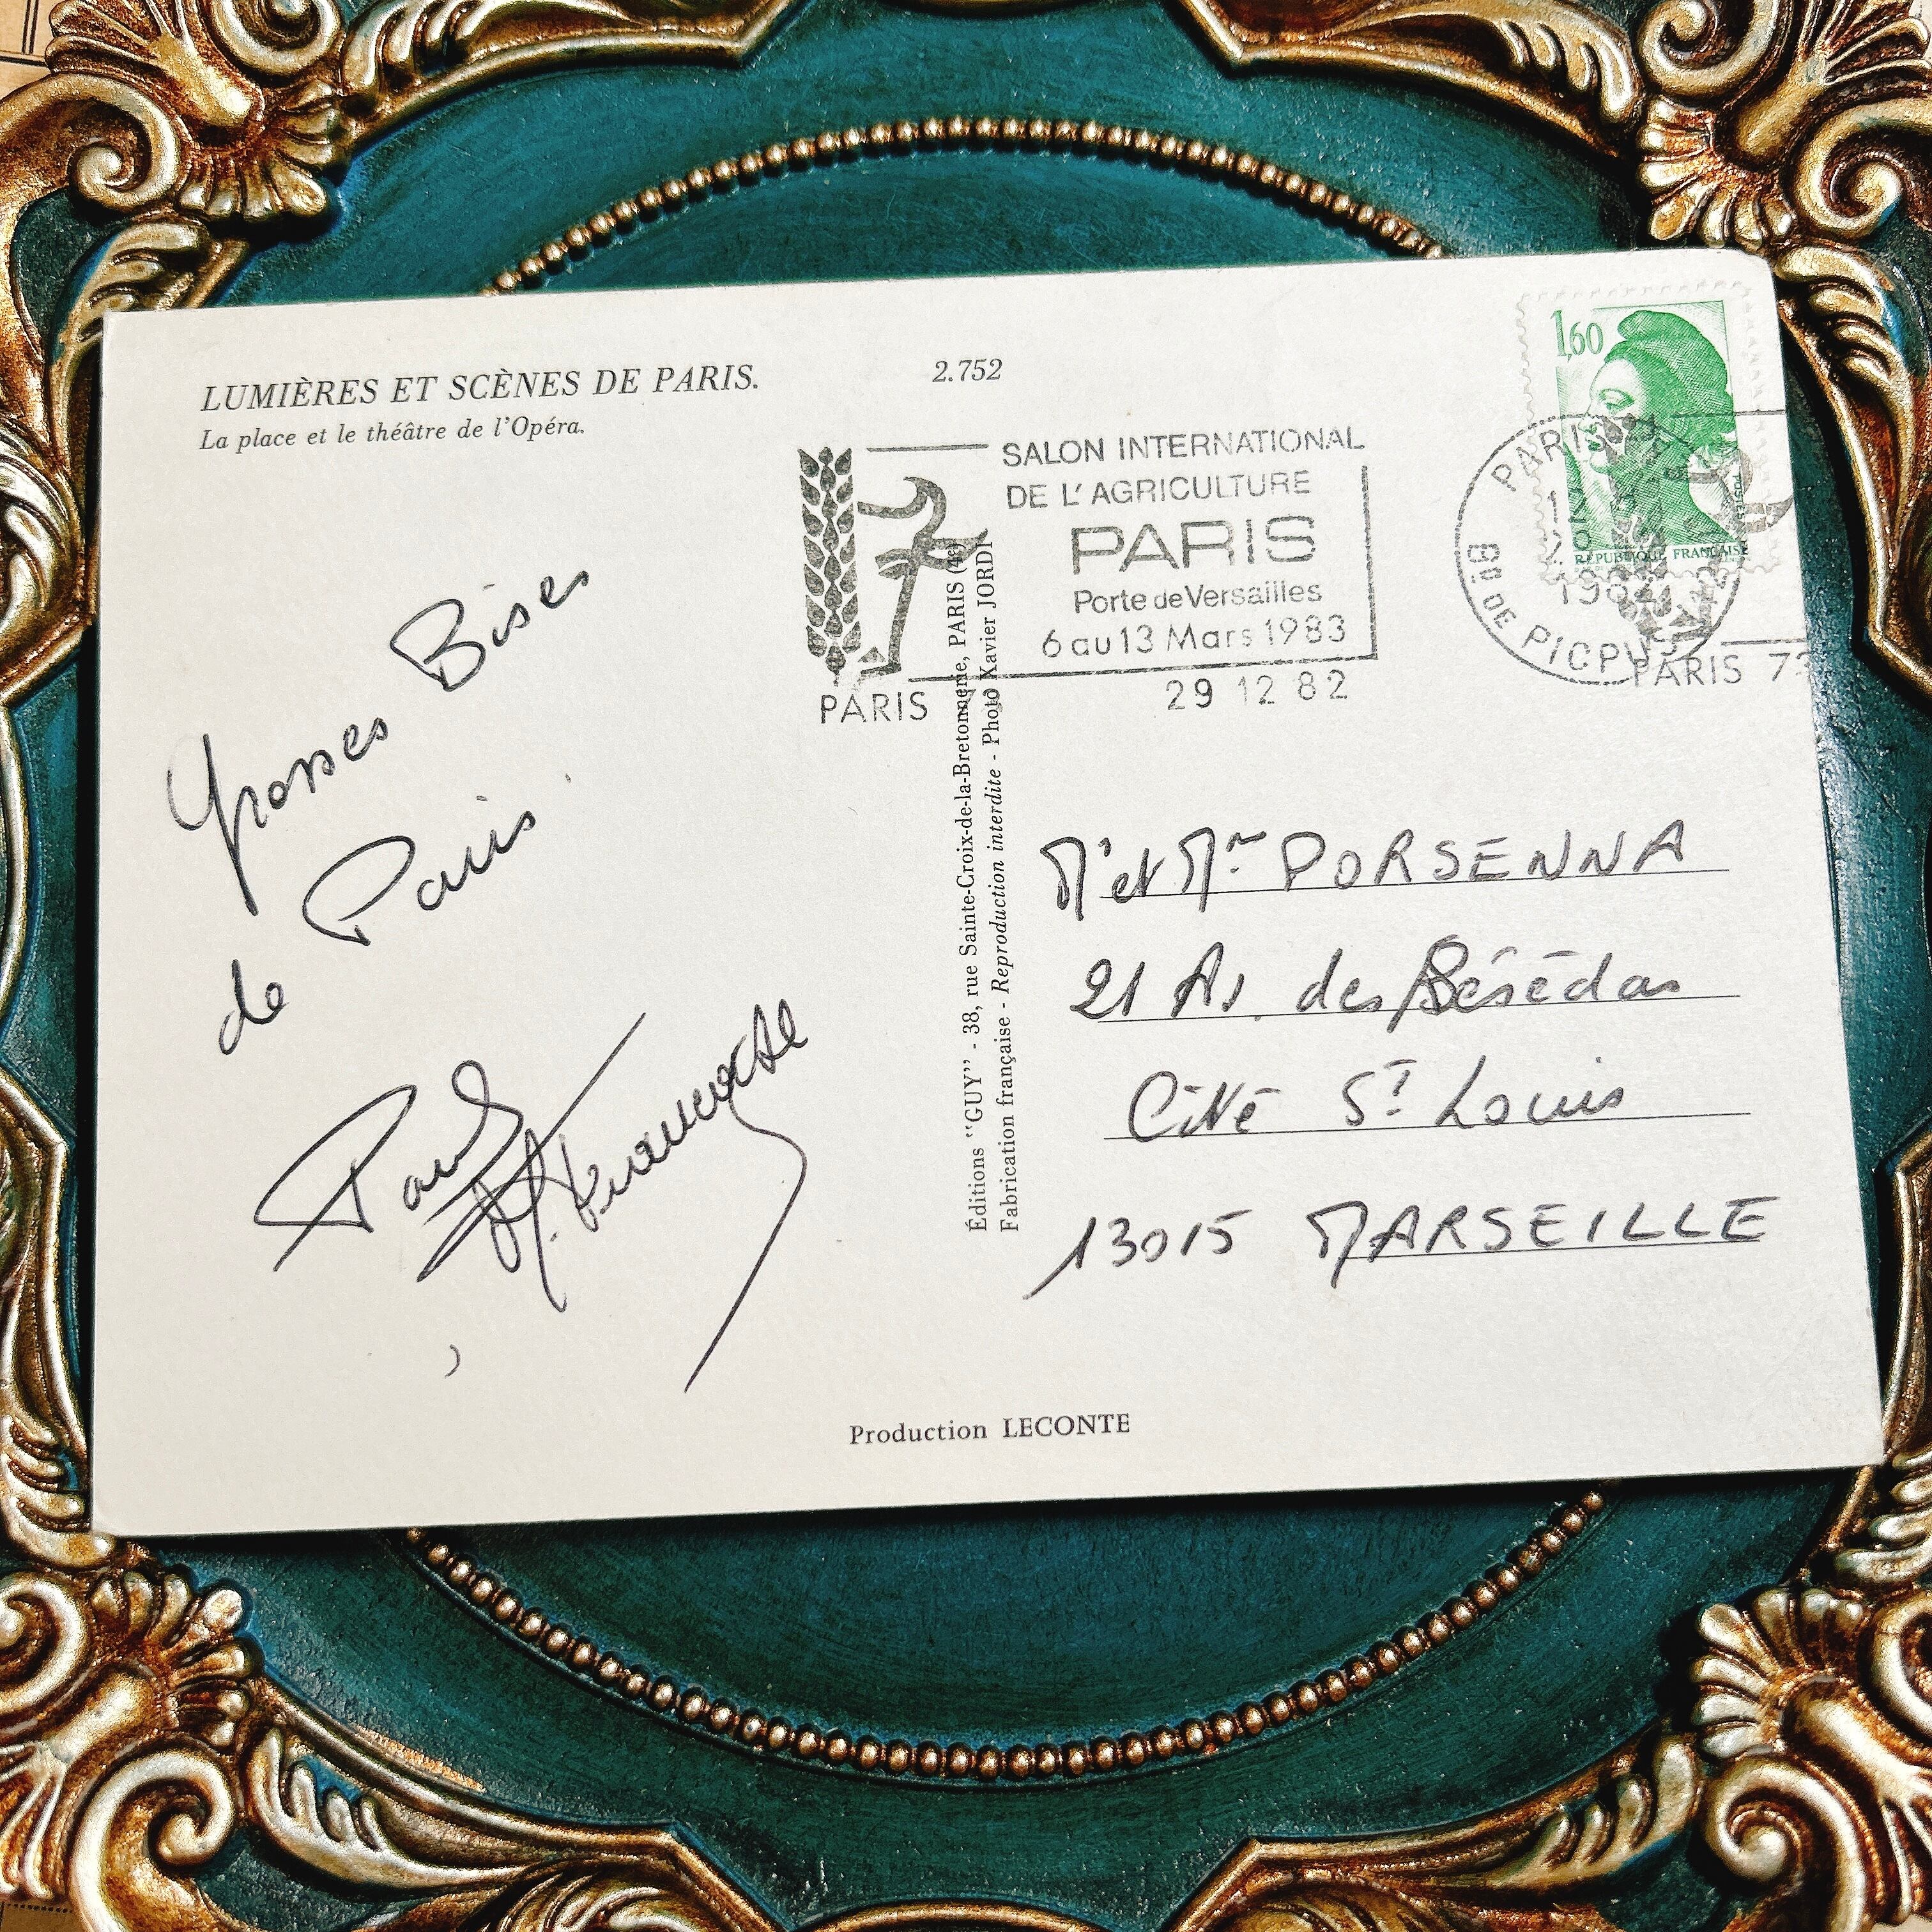 LUMIÈRES ET SCÈNES DE PARIS.
La place et le théâtre de l'Opéra.
2.752
1,60
POSTES
RÉPUBLIQUE FRANÇAISE
SALON INTERNATIONAL
DE L'AGRICULTURE
PARIS
Porte de Versailles
6 au 13 Mars 1983
PARIS
29 12 82
PARIS
Bd DE PICPUS
PARIS
Grosses Bises
de Paris
Paul
Éditions "GUY" - 38, rue Sainte-Croix-de-la-Bretonnerie, PARIS (4e)
Fabrication française - Reproduction interdite - Photo Xavier JORDI
et PORSENNA
21 des
Cité St Louis
13015 MARSEILLE
Production LECONTE